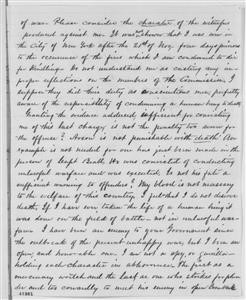 of war. Please consider the character of the witnesses
produced against me. It was shown that I was not in
the City of New York after the 21st of Nov. four days previous
to the occurrence of the fires which I am condemned to die
for kindling. Do not understand me as casting any im
proper reflections on the members of the Commission, I
suppose they did their duty as conscientious men perfectly
aware of the responsibility of condemning a human being to death
Granting the evidence adduced sufficient for convicting
me of this last charge is not the penalty too severe for
the offence? Arson is not punishable with death. An
example is not needed for one has just been made in the
person of Capt Beall. He was convicted of conducting
unlawful warfare and was executed. Is not his fate a
sufficient warning to offenders? My blood is not necessary
to the welfare of this country. I feel that I do not deserve
death. If I have ever taken the life of a human being it
was done on the field of battle - not in unlawful war-
fare. I have been an enemy to your Government since
the outbreak of the present unhappy war but I have been an
open and honorable one. I am not a spy, or guerilla -
holding each character in abhorrence. The first as a
mercenary wretch and the last as one who strikes for plun
der and too cowardly to meet his enemy in open
41981